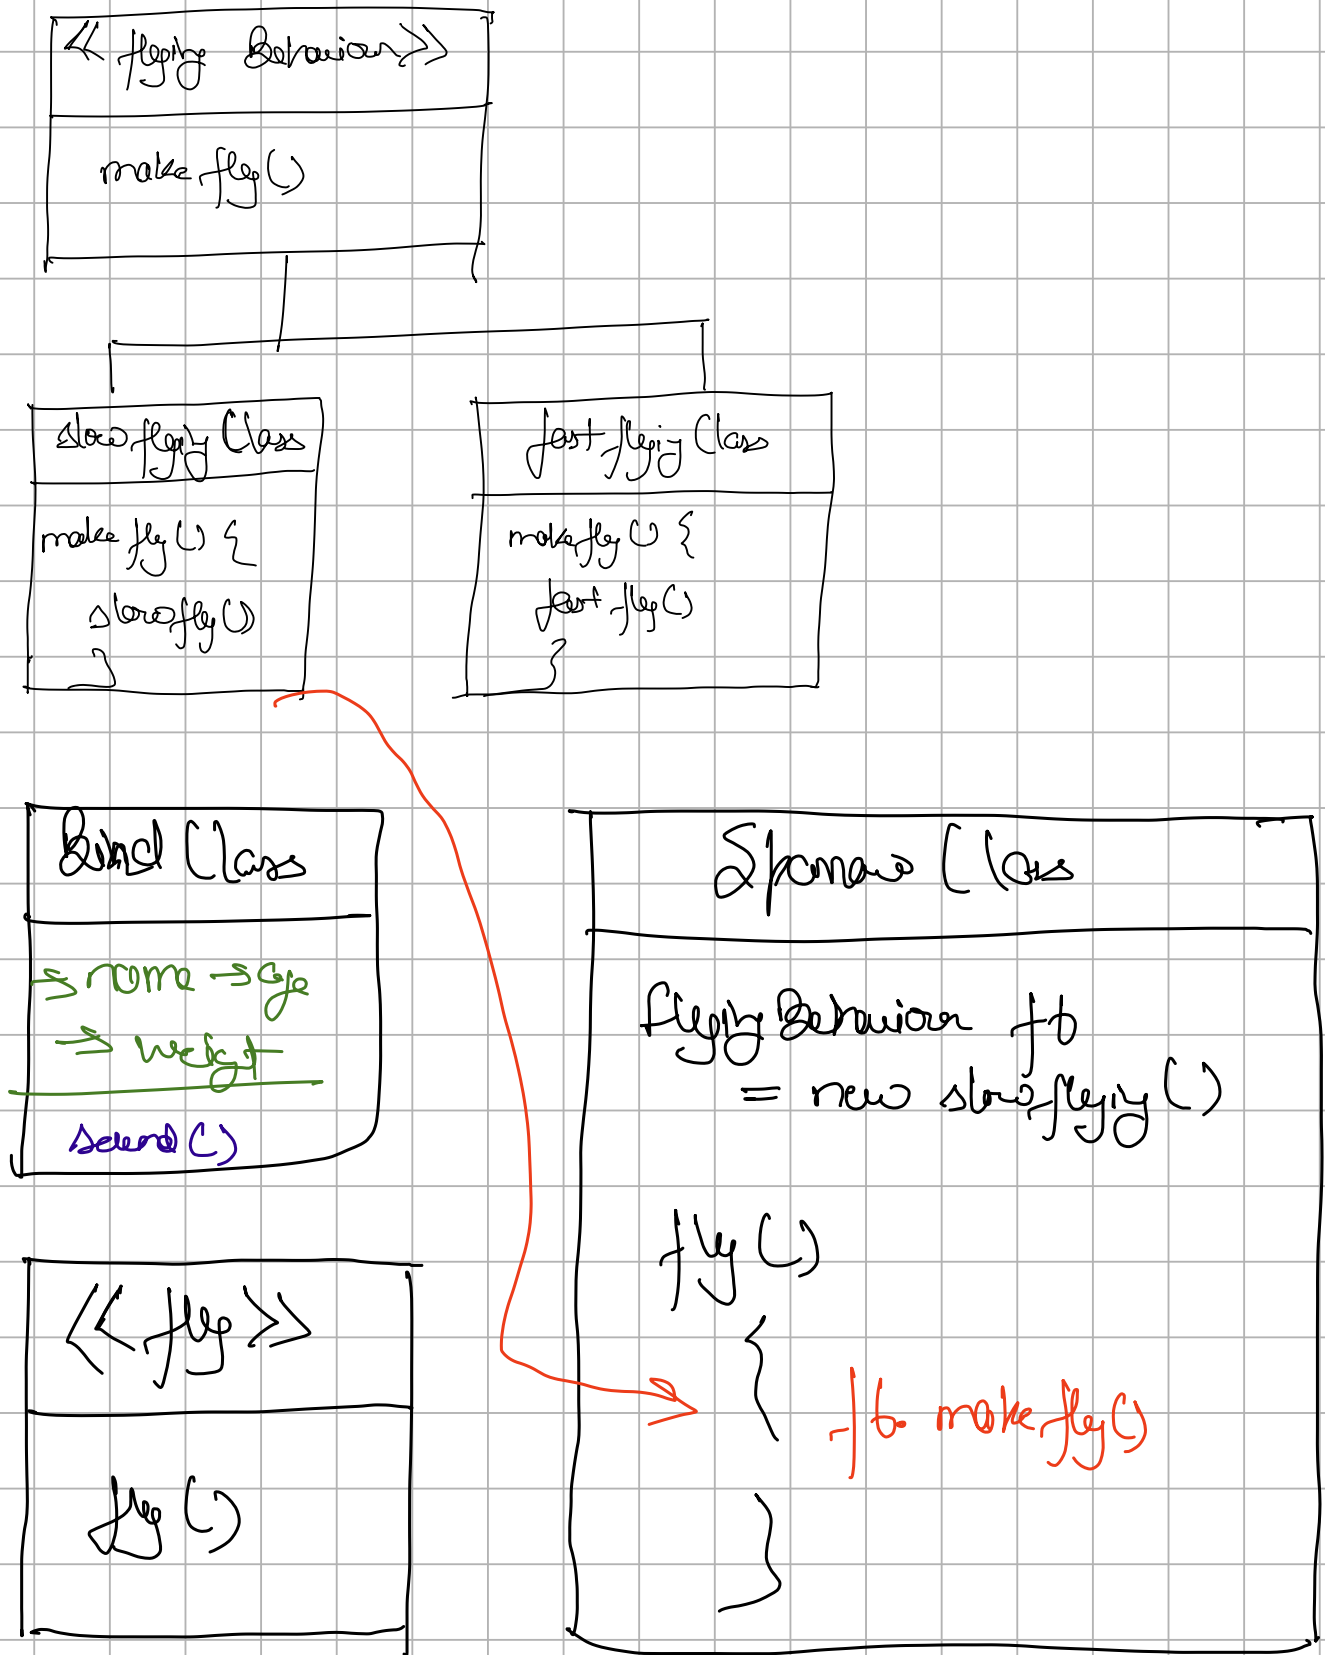 << flying Behaviour >>
make fly()
slow flying Class
fast flying Class
make fly() {
slow fly()
}
make fly() {
fast fly()
}
Bird Class
→ name → age
→ weight
sound()
<< fly >>
fly()
Sparrow Class
flying Behaviour fb
= new slow flying()
fly()
{
fb. make fly()
}